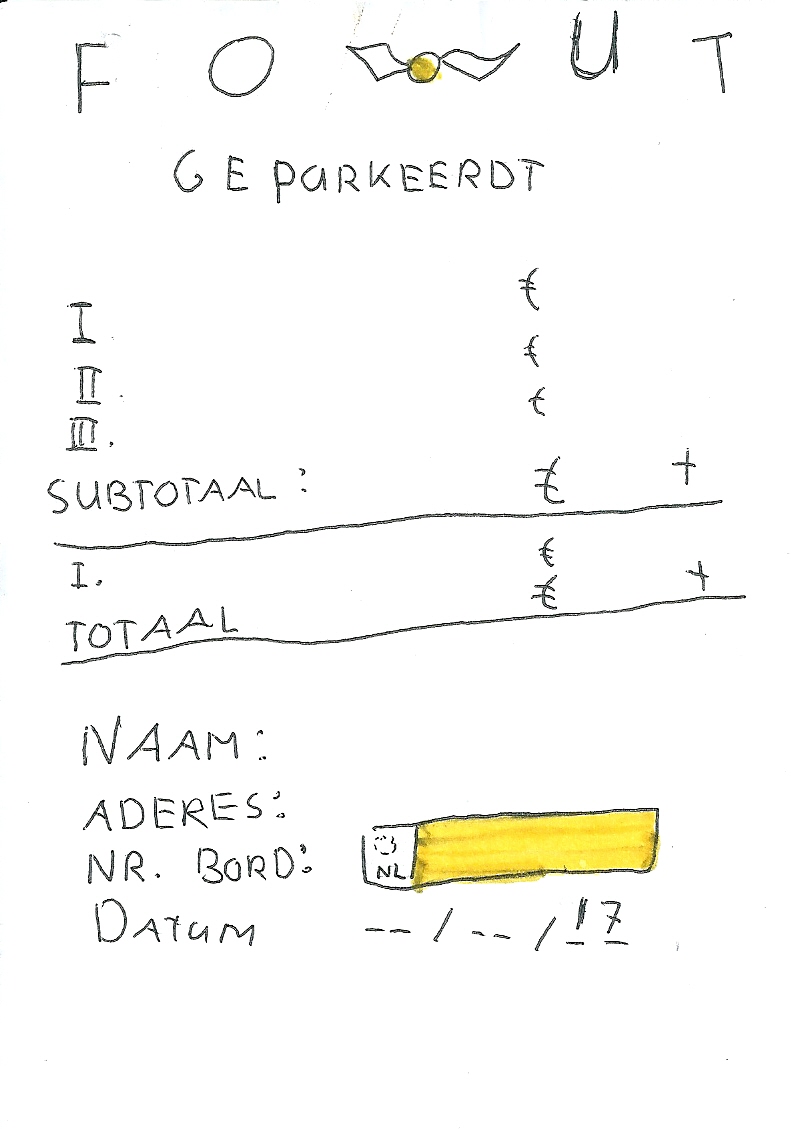 F O U T
GEPARKEERDT
I. €
II. €
III. €
SUBTOTAAL: € +
I. €
TOTAAL € +
NAAM:
ADERES:
NR. BORD: NL
DATUM -- / -- / 17